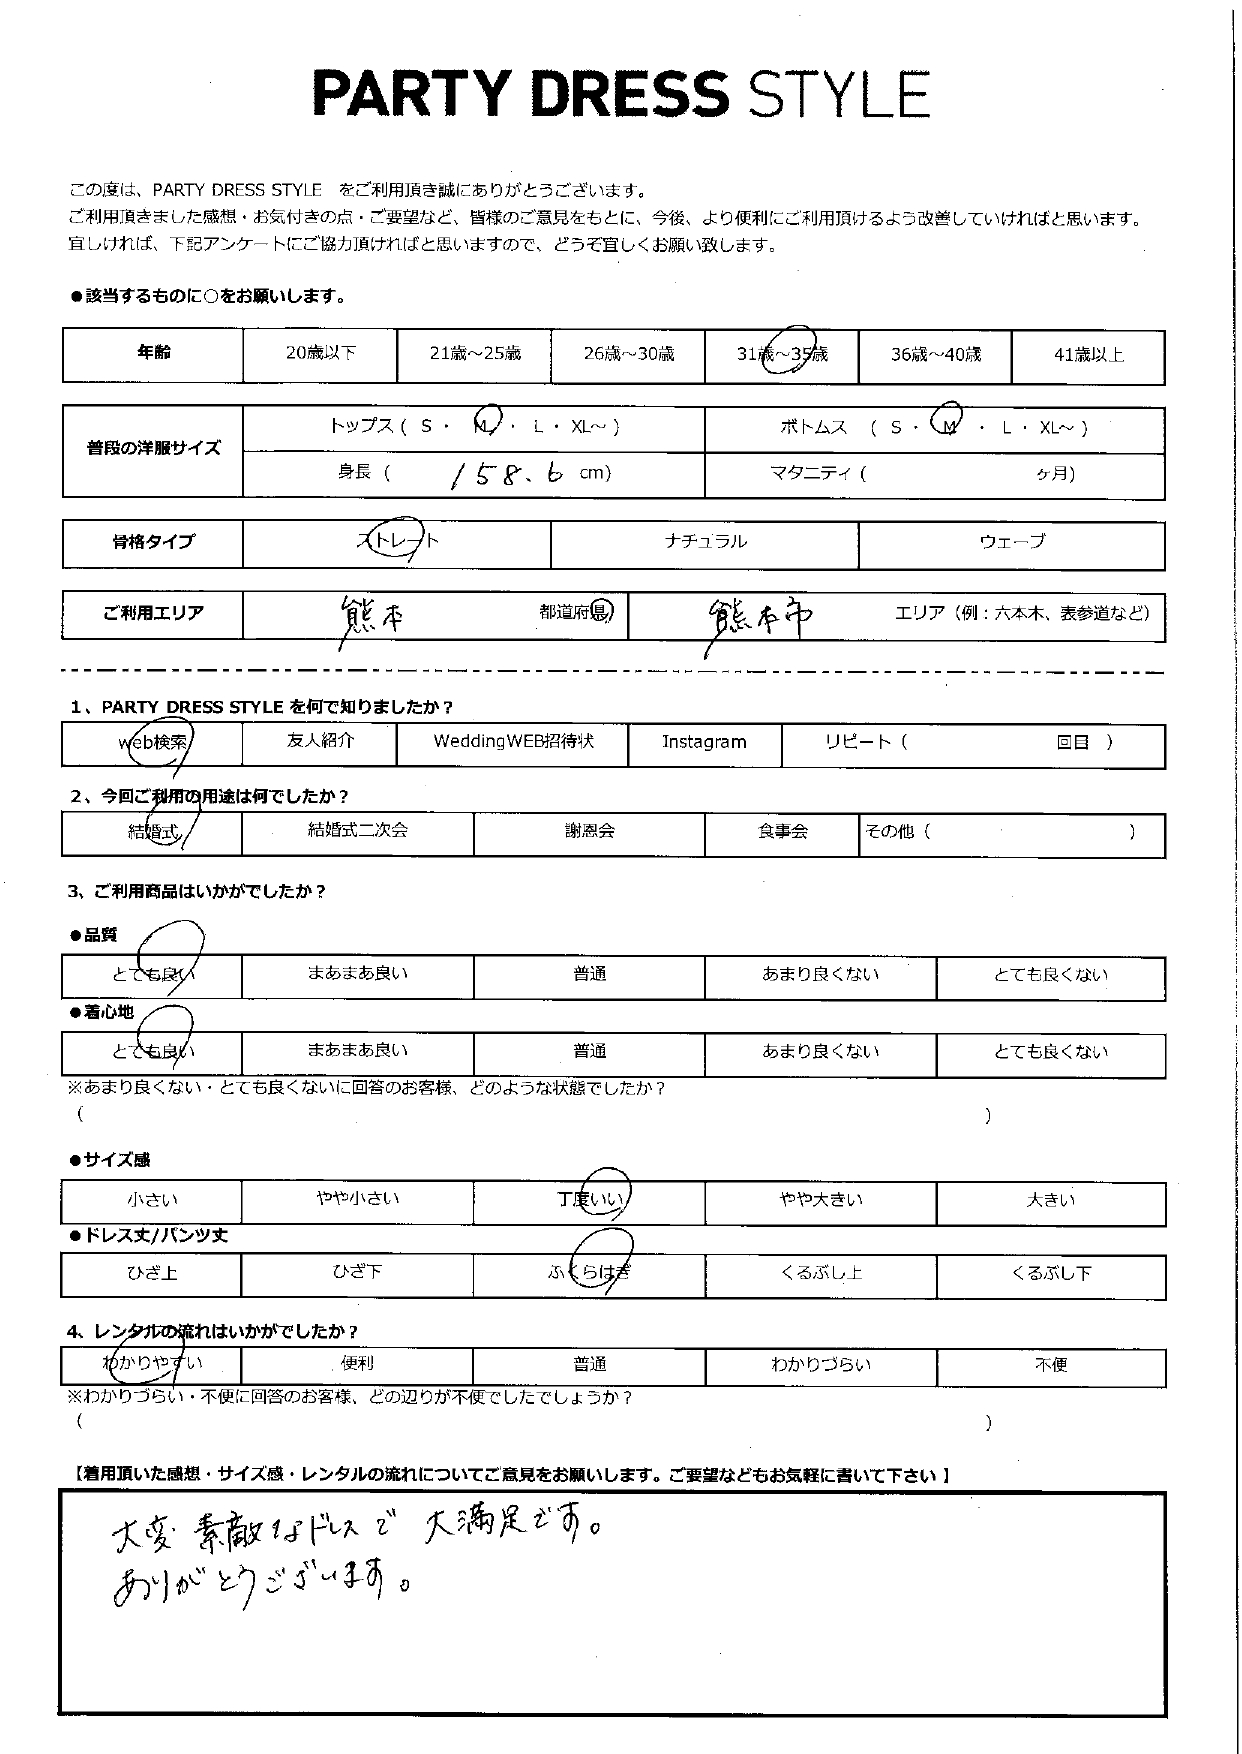 PARTY DRESS STYLE
この度は、PARTY DRESS STYLE　をご利用頂き誠にありがとうございます。
ご利用頂きました感想・お気付きの点・ご要望など、皆様のご意見をもとに、今後、より便利にご利用頂けるよう改善していければと思います。
宜しければ、下記アンケートにご協力頂ければと思いますので、どうぞ宜しくお願い致します。
●該当するものに○をお願いします。
年齢 20歳以下 21歳～25歳 26歳～30歳 31歳～35歳 36歳～40歳 41歳以上
普段の洋服サイズ
トップス ( S ・ M ・ L ・ XL～ ) ボトムス ( S ・ M ・ L ・ XL～ )
身長 ( 158.6 cm) マタニティ ( ヶ月)
骨格タイプ ストレート ナチュラル ウェーブ
ご利用エリア 熊本 都道府県 熊本市 エリア（例：六本木、表参道など）
1、PARTY DRESS STYLE を何で知りましたか？
web検索 友人紹介 WeddingWEB招待状 Instagram リピート ( 回目 )
2、今回ご利用の用途は何でしたか？
結婚式 結婚式二次会 謝恩会 食事会 その他 ( )
3、ご利用商品はいかがでしたか？
●品質
とても良い まあまあ良い 普通 あまり良くない とても良くない
●着心地
とても良い まあまあ良い 普通 あまり良くない とても良くない
※あまり良くない・とても良くないに回答のお客様、どのような状態でしたか？
( )
●サイズ感
小さい やや小さい 丁度いい やや大きい 大きい
●ドレス丈/パンツ丈
ひざ上 ひざ下 ふくらはぎ くるぶし上 くるぶし下
4、レンタルの流れはいかがでしたか？
わかりやすい 便利 普通 わかりづらい 不便
※わかりづらい・不便に回答のお客様、どの辺りが不便でしたでしょうか？
( )
【着用頂いた感想・サイズ感・レンタルの流れについてご意見をお願いします。ご要望などもお気軽に書いて下さい】
大変素敵なドレスで大満足です。
ありがとうございます。